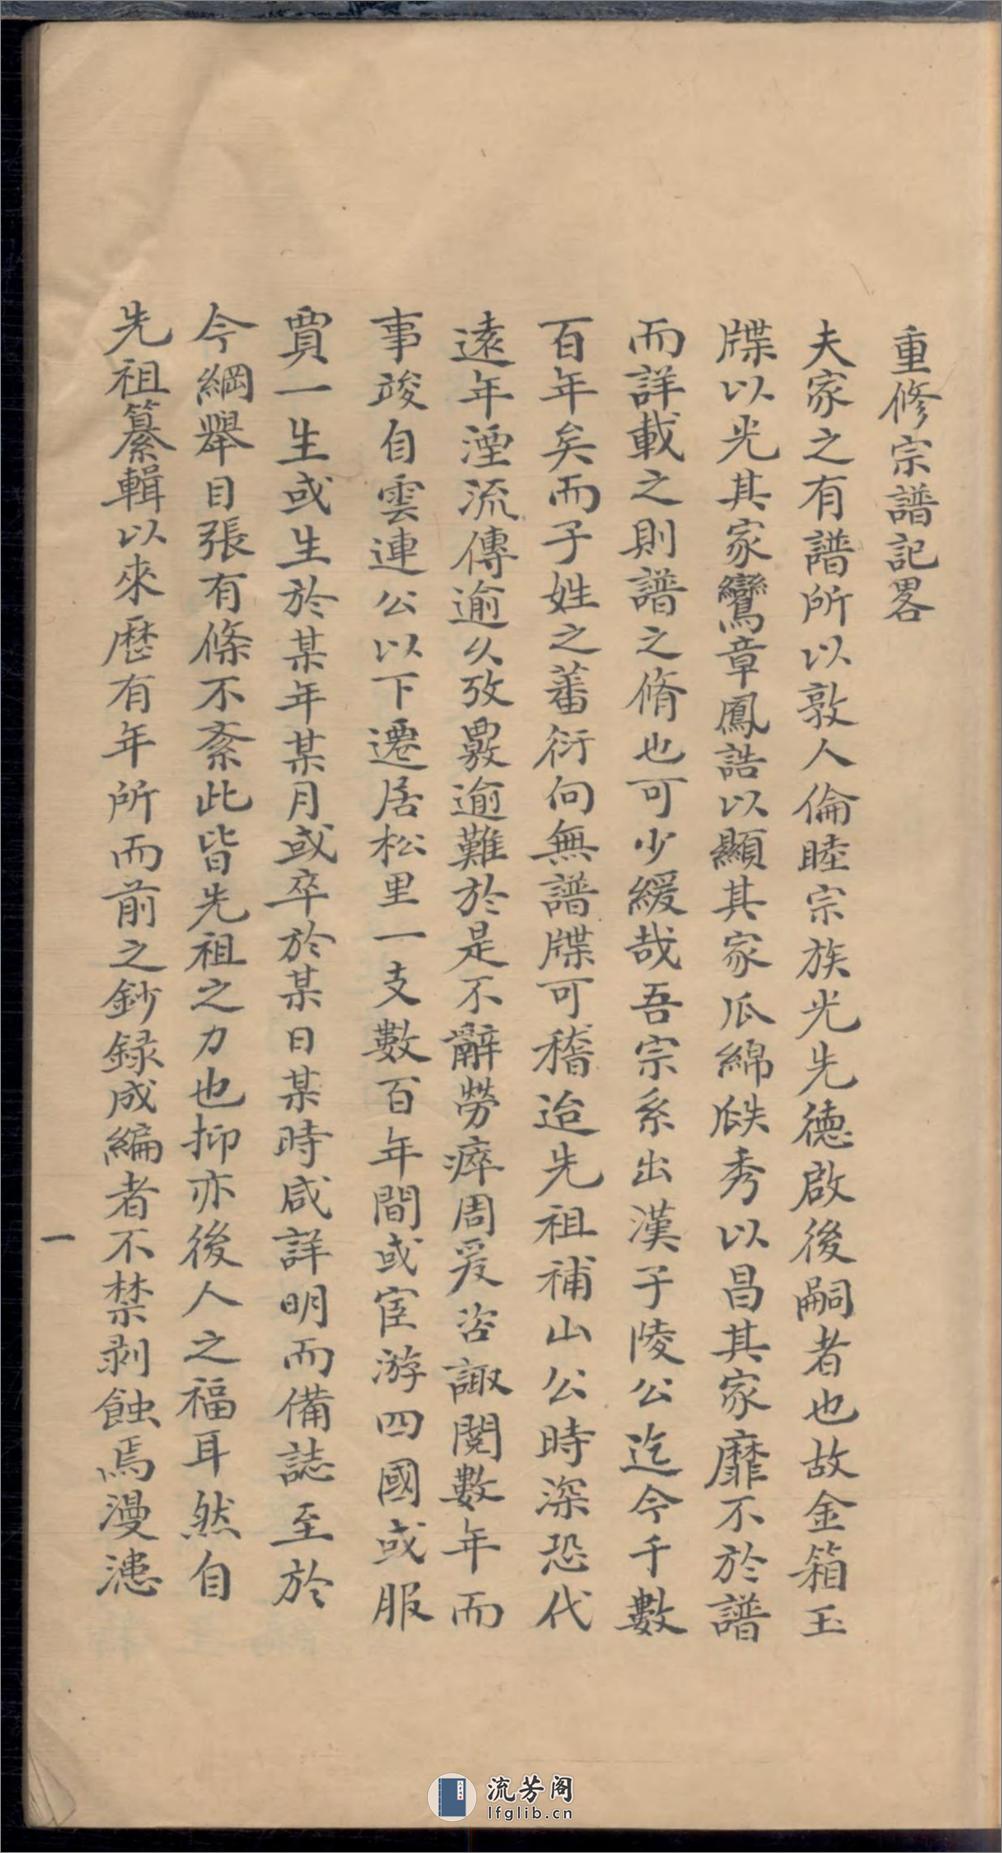 重修宗譜記畧
夫家之有譜所以敦人倫睦宗族光先德啟後嗣者也故金箱玉
牒以光其家鸞章鳳誥以顯其家瓜綿瓞秀以昌其家靡不於譜
而詳載之則譜之脩也可少緩哉吾宗系出漢子陵公迄今千數
百年矣而子姓之蕃衍向無譜牒可稽迨先祖補山公時深恐代
遠年湮流傳逾久攷覈逾難於是不辭勞瘁周爰咨諏閱數年而
事竣自雲連公以下遷居松里一支數百年間或宦游四國或服
賈一生或生於某年某月或卒於某日某時咸詳明而備誌至於
今綱舉目張有條不紊此皆先祖之力也抑亦後人之福耳然自
先祖纂輯以來歷有年所而前之鈔録成編者不禁剥蝕焉漫漶
一
流芳阁
lfglib.cn